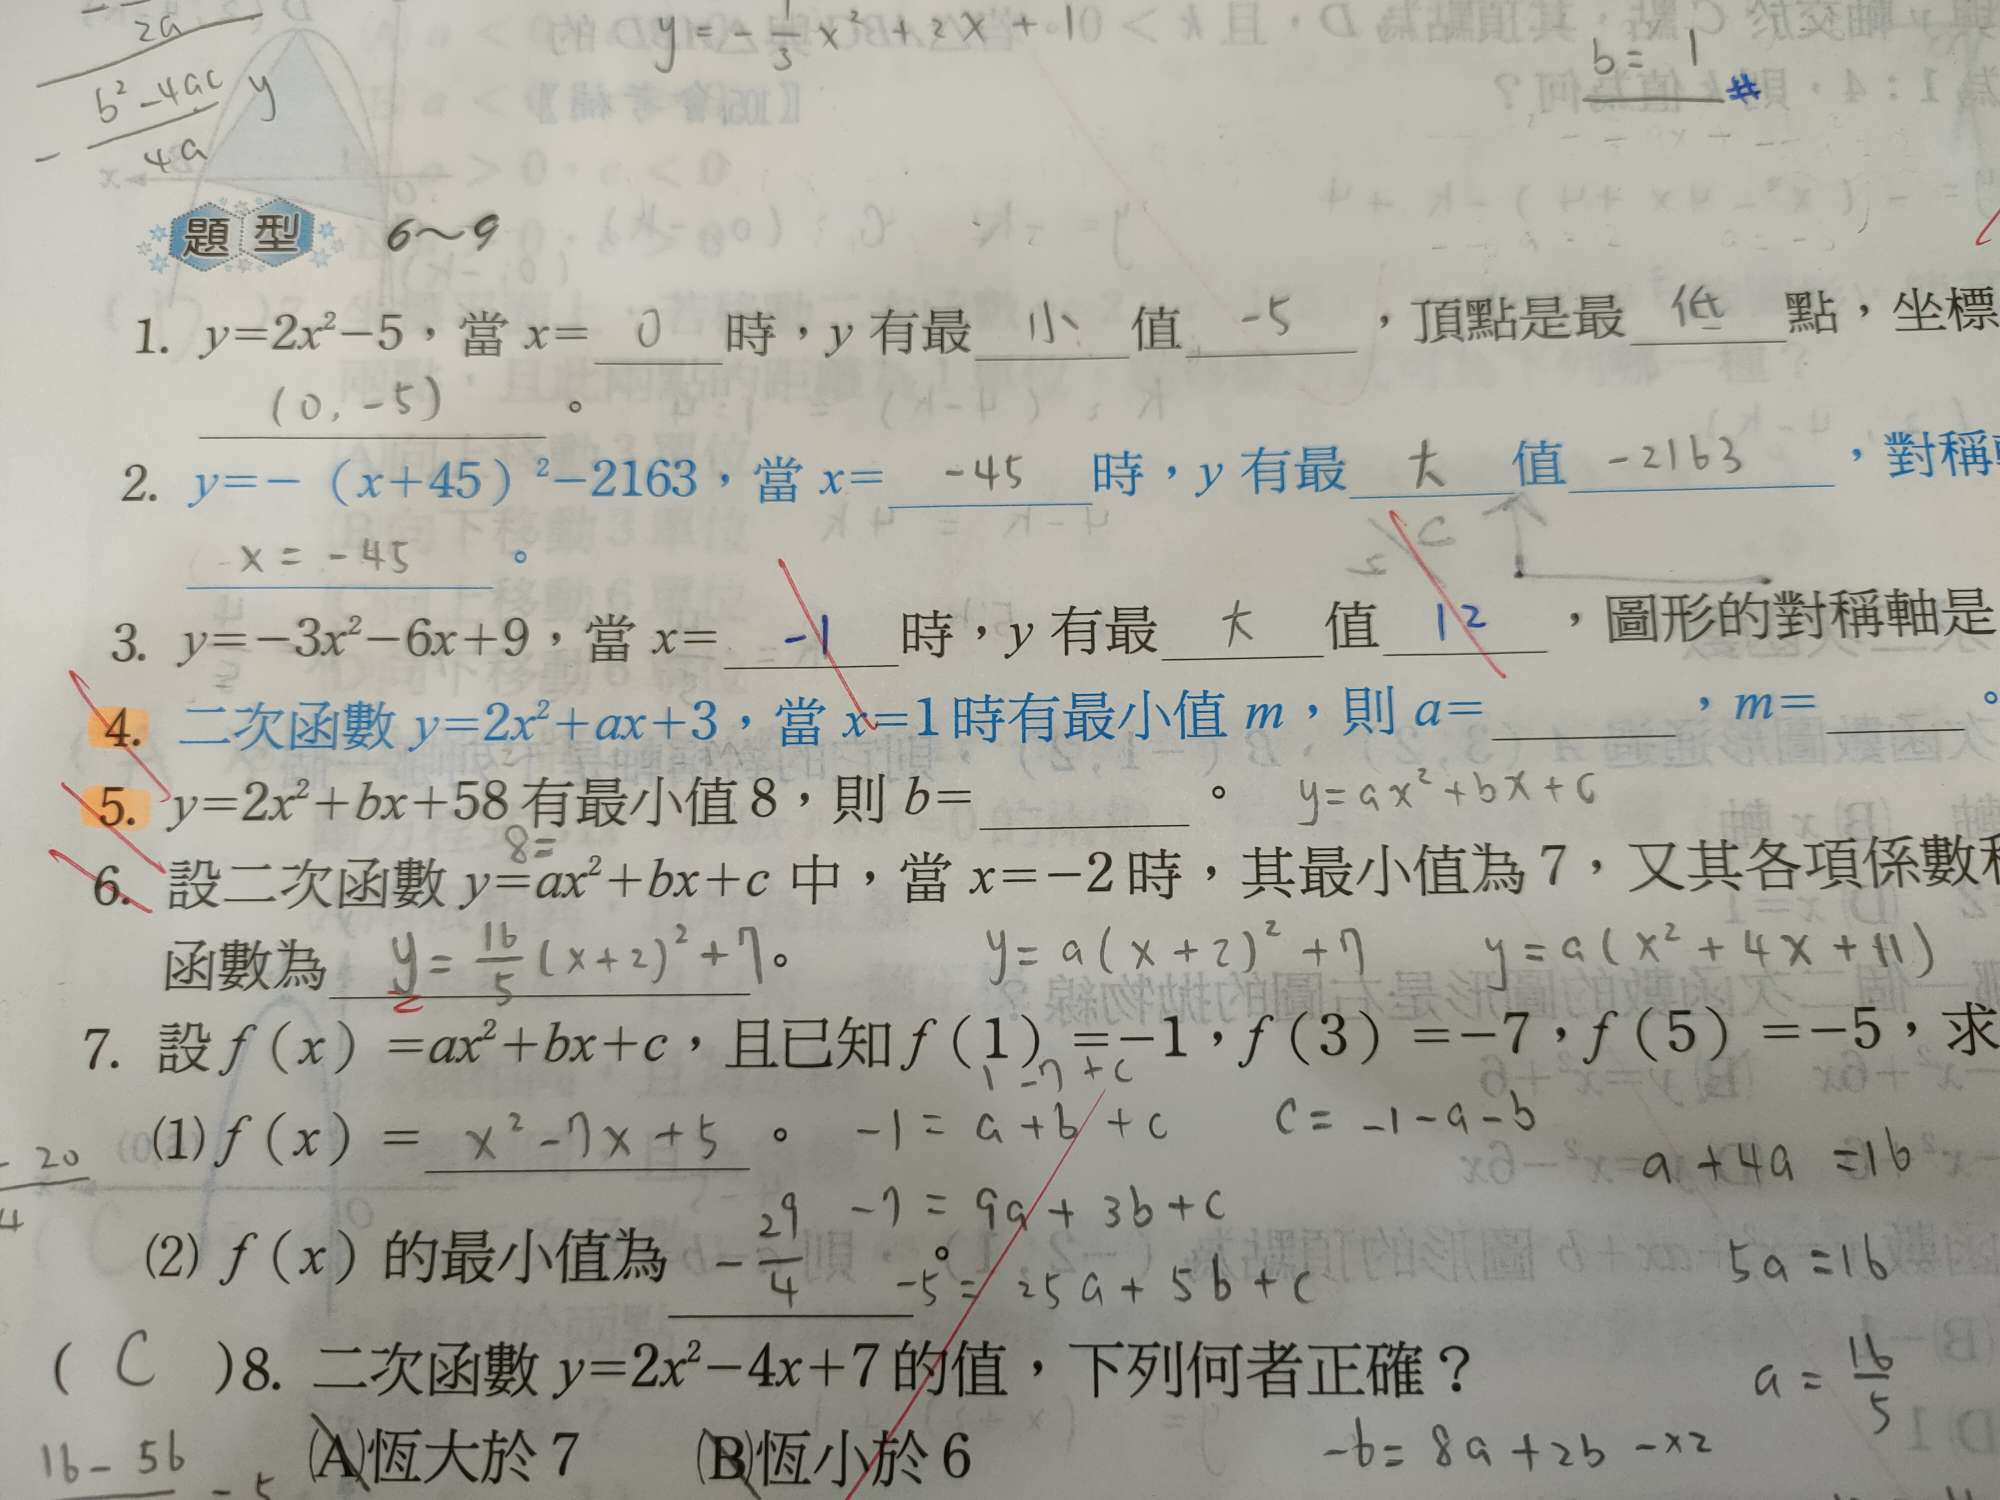 2a
b²-4ac y
- 4a
y = -1/3 x² + 2x + 1
b = 1 #
題型 6～9
1. y=2x²-5，當 x= 0 時，y 有最 小 值 -5 ，頂點是最 低 點，坐標
(0, -5) 。
2. y=-（x+45）²-2163，當 x= -45 時，y 有最 大 值 -2163 ，對稱
x = -45 。
3. y=-3x²-6x+9，當 x= -1 時，y 有最 大 值 12 ，圖形的對稱軸是
4. 二次函數 y=2x²+ax+3，當 x=1 時有最小值 m，則 a= ，m= 。
5. y=2x²+bx+58 有最小值 8，則 b= 。 y=ax²+bx+c
8=
6. 設二次函數 y=ax²+bx+c 中，當 x=-2 時，其最小值為 7，又其各項係數
函數為 y = 16/5 (x+2)² + 7。 y = a(x+2)² + 7 y = a(x²+4x+11)
7. 設 f（x）=ax²+bx+c，且已知 f（1）=-1，f（3）=-7，f（5）=-5，求
1 -7 + c
(1) f（x）= x²-7x+5 。 -1 = a+b+c c = -1-a-b
- 20
4
a + 4a = 16
-7 = 9a + 3b + c
(2) f（x）的最小值為 -29/4 。
-5 = 25a + 5b + c
5a = 16
( C )8. 二次函數 y=2x²-4x+7 的值，下列何者正確？
a = 16/5
16 - 56
- 5
(A)恆大於 7 (B)恆小於 6
-6 = 8a + 2b -x2